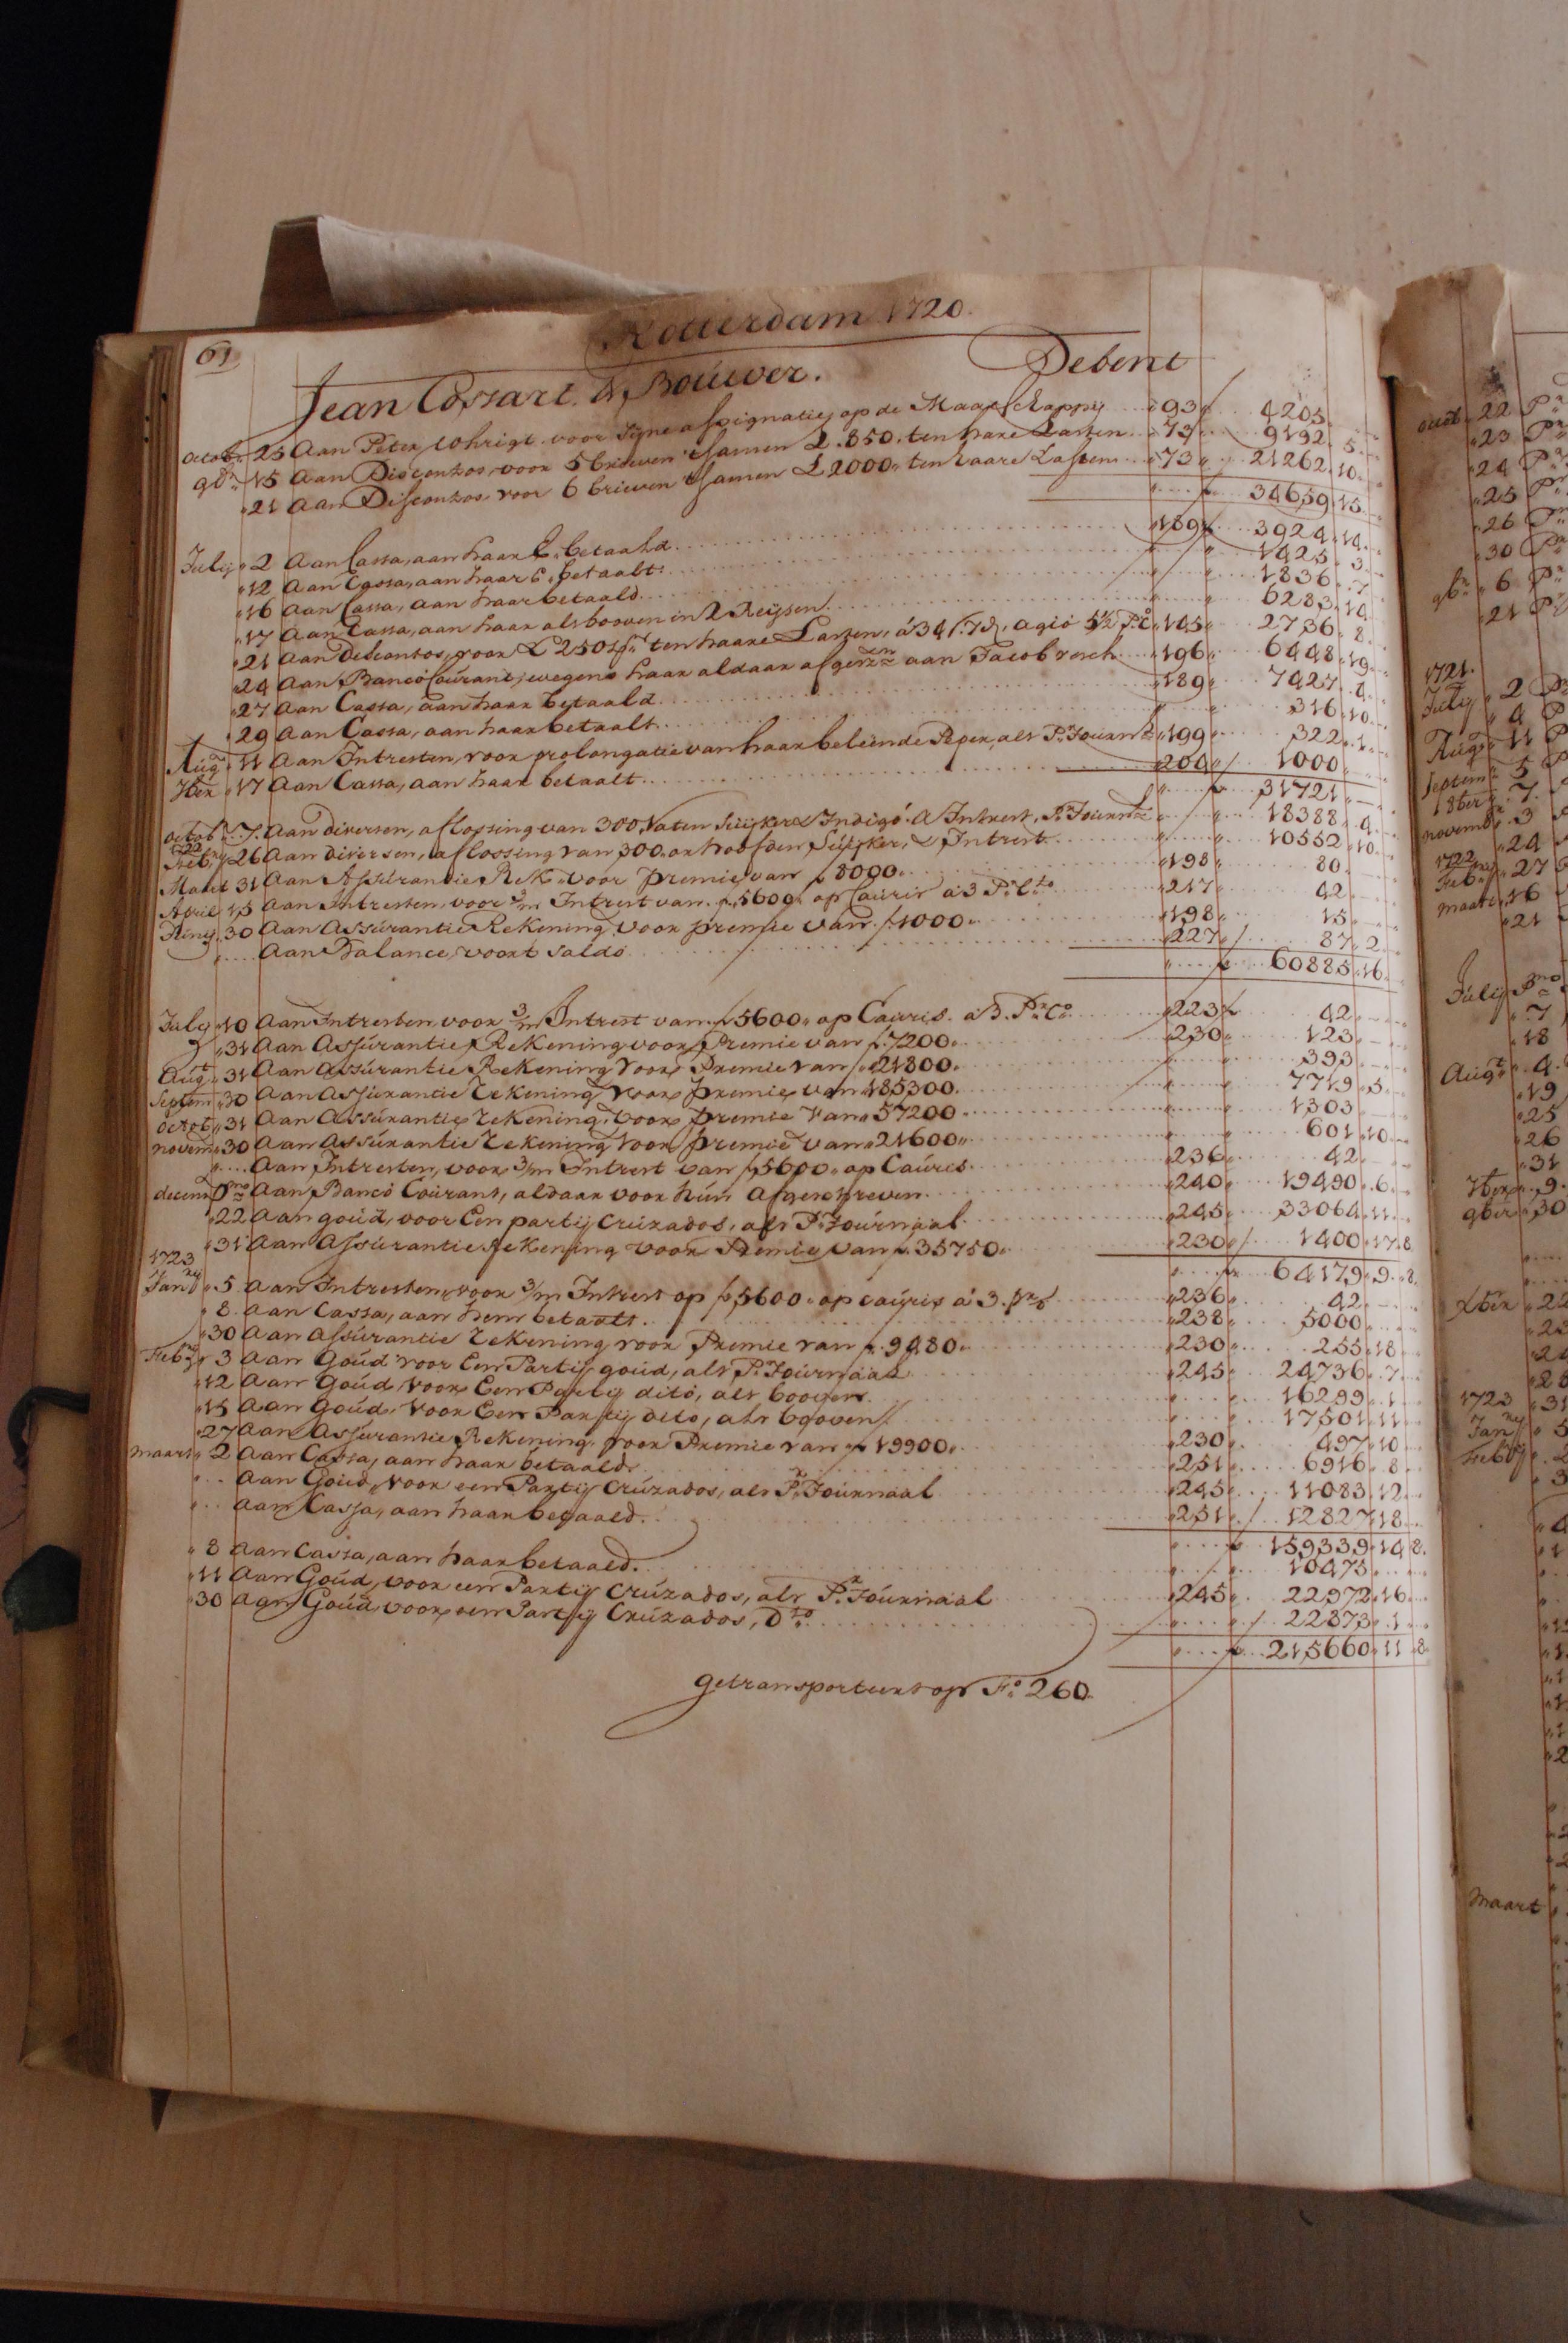 61
Rotterdam 1720.
Jean Cossart & Bouwer. Debent
octob. 25 Aan Peter Whrigt voor syne assignatie op de Maatschappy 93 4205.
9br 15 Aan Disconto, voor 5 brieven t'samen £ 850. ten hare Lasten 73 9192. 5.
21 Aan Disconto, voor 6 brieven t'samen £ 2000. ten haare Lasten 73 21262. 10.
34659. 15.
July 2 Aan Cassa, aan haar E. betaald 189 3924. 14.
12 Aan Cassa, aan haar E. betaalt 1425. 3.
16 Aan Cassa, aan haar betaald 1836. 7.
17 Aan Cassa, aan haar als booven in 2 Reysen 6283. 14.
21 Aan Disconto, voor £ 250 ten haare Lasten, á 34 ß. 7 d, agio 5½ P.Co 145 2736. 8.
24 Aan Banco Courant, wegens haar aldaar afges. aan Jacob 196 6448. 19.
27 Aan Cassa, aan haar betaald 189 7427. 4.
29 Aan Cassa, aan haar betaalt 316. 10.
Aug. 11 Aan Intresten, voor prolongatie van haar beleinde Peper, als Pr. Journl. 199 322. 1.
7ber 17 Aan Cassa, aan haar betaalt 204 1000.
31721.
octob. 7. Aan diversen, aflossing van 300 Vaten Suijker & Indigo & Intrest, Pr. Journl. 18388. 4.
1722
Feb. 26 Aan diversen, aflossing van 300 oxhoofden Suijker, & Intrest 10552. 10.
Maart 31 Aan Assurantie Rek. voor premie van ƒ 8000. 198 80.
April 15 Aan Intresten, voor 3/m Intrest van ƒ 5600. op Cauris á 3 P.Cto 217 42.
Juny 30 Aan Assurantie Rekening voor premie van ƒ 1000. 198 15.
Aan Balance, voor't saldo 227 87. 2.
60885. 16.
July 10 Aan Intresten voor 3/m Intrest van ƒ 5600. op Cauris. a 3. P.Co 223 42.
31 Aan Assurantie Rekening voor Premie van ƒ 7200. 230 123.
Augt. 31 Aan Assurantie Rekening voor Premie van 21800. 393.
Septem. 30 Aan Assurantie Rekening voor premie van 185300. 7719. 5.
octob. 31 Aan Assurantie Rekening, voor premie van 57200 1303.
novem. 30 Aan Assurantie Rekening voor premie van 21600. 601. 10.
Aan Intresten, voor 3/m Intrest van ƒ 5600. op Cauris 236 42.
decem. Pmo Aan Banco Courant, aldaar voor hun afgeschreven 240 19490. 6.
22 Aan goud, voor Een partij Cruzados, als Pr. Journaal 245 33064. 11.
31 Aan Assurantie Rekening voor Premie van ƒ 35750. 230 1400. 17. 8
64179. 9. 8.
1723
Jan.ry 5 Aan Intresten, voor 3/m Intrest op ƒ 5600. op cauris á 3. Pr.Co 236 42.
8. Aan Cassa, aan hem betaalt. 238 5000.
30 Aan Assurantie Rekening voor Premie van ƒ 9480. 230 255. 18.
Feb.ry 3 Aan Goud voor Een Partij goud, als Pr. Journaal 245 24736. 7.
12 Aan Goud, voor Een Partij dito, als booven 16299. 1.
15 Aan Goud, voor Een Partij dito, als booven 17501. 11.
27 Aan Assurantie Rekening voor Premie van 19900. 230 497. 10
maart 2 Aan Cassa, aan haar betaald 251 6916. 8.
Aan Goud, voor een Partij Cruzados, als Pr. Journaal 245 11083. 12.
Aan Cassa, aan haar betaald. 251 12827. 18.
159339. 14. 8.
8 Aan Cassa, aan haar betaald. 10473.
11 Aan Goud, voor een Partij Cruzados, als Pr. Journaal 245 22972. 16.
30 Aan Goud, voor een Partij Cruzados, Dto. 22873. 1.
215660. 11. 8.
getransporteert op Fo. 260.
octob 22
23
24
25
26
30
9br 6
21
1721.
July 2
4
Aug. 11
Septem. 5
8ber 7.
novemb. 3
24
1722
Feb.ry 27
maart 16
21
July Pmo
7
18
Augt. 4.
19
25
26
31
7ber 9.
9ber 30
xber 22
1723 31
Jan.ry 5
Feb.ry 2
3
Maart